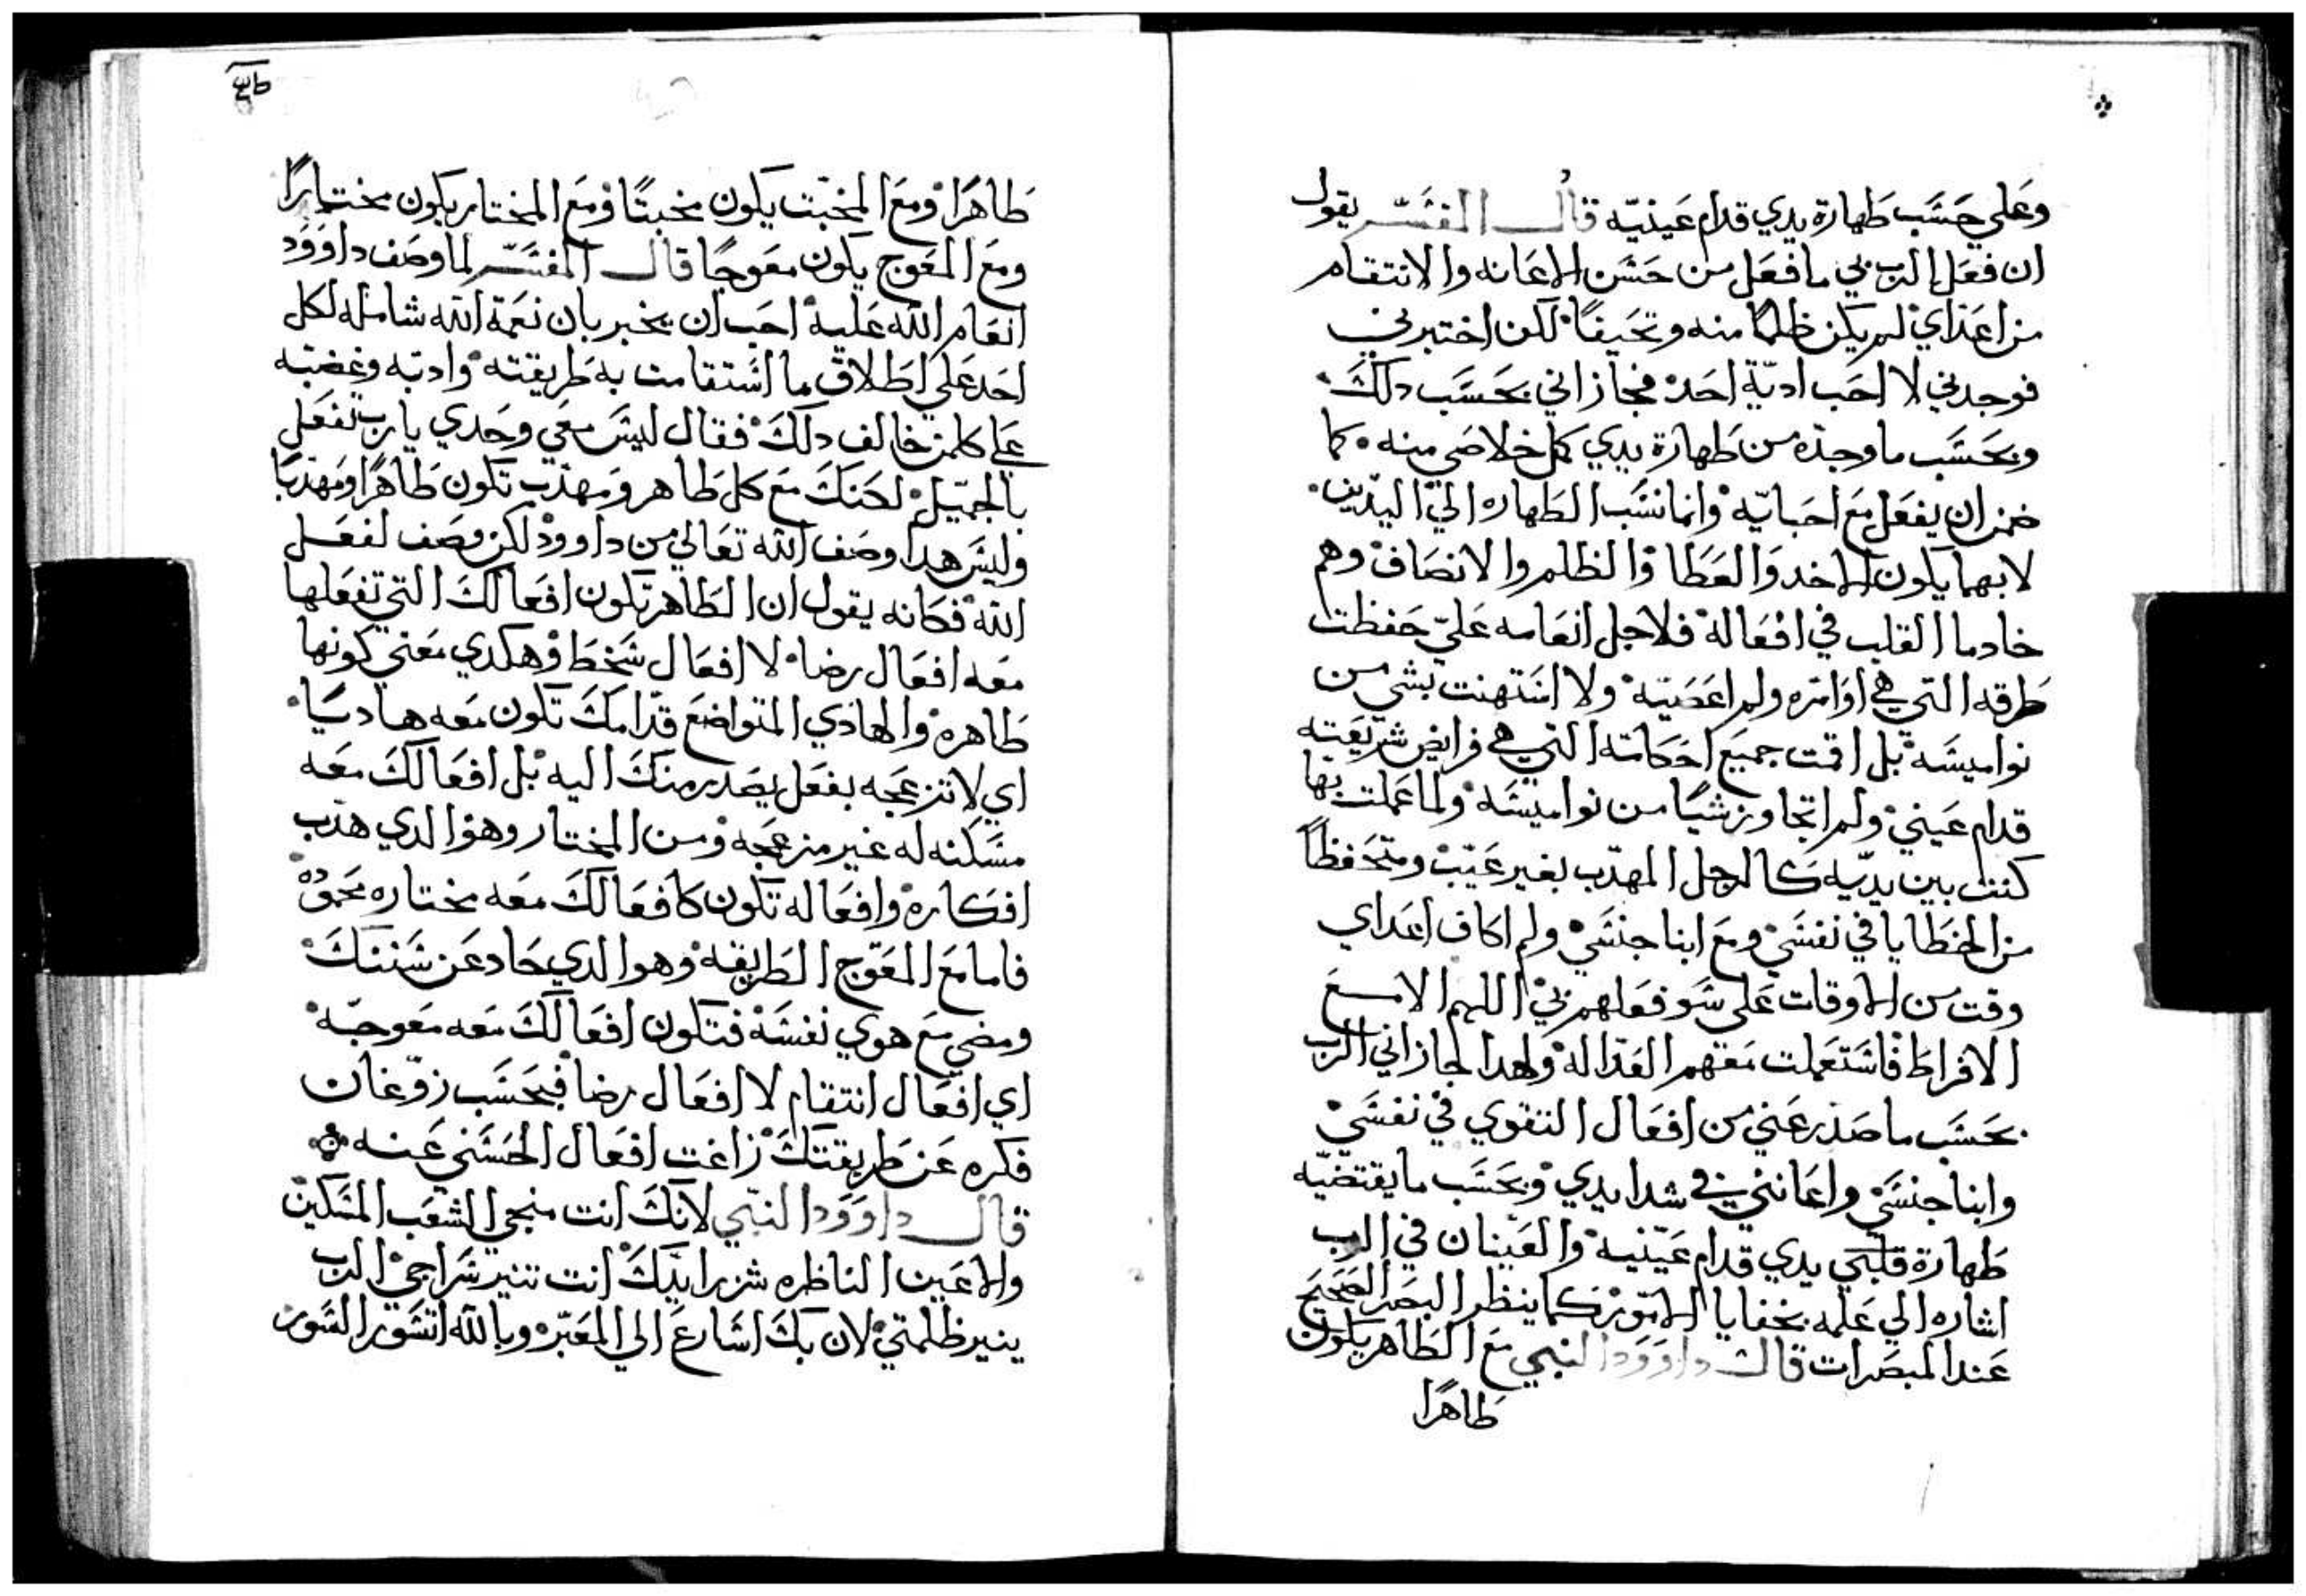 وعلي حسب طهارة يدي قدام عينيه قال المفسر يقول
ان فعل الرب بي ما فعل من حسن الاعانه والانتقام
من اعداي لم يكن ظلما منه وتحيفا لكن اختبرني
فوجدني لا احب ادية احد فجازاني بحسب دلك
وبحسب ما وجده من طهارة يدي كل خلاصي منه كما
ضمن ان يفعل مع احبايه وانما نسب الطهاره الي اليدين
لا بهما يكون الاخد والعطا والظلم والانصاف وهم
خادما القلب في افعاله فلاجل انعامه علي حفظت
طرقه التي هي اوامره ولم اعصيه ولا استهنت بشي من
نواميسه بل اقمت جميع احكامه التي هي فرايض شريعته
قدام عيني ولم اتجاوز شيا من نواميسه ولما عملت بها
كنت بين يديه كالرجل المهدب بغير عيب ومتحفظا
من الخطايا في نفسي ومع ابنا جنسي ولم اكاف اعداي
وقت من الاوقات على سو فعلهم بي اللهم الا مع
الافراط فاستعملت معهم العداله ولهدا جازاني الرب
بحسب ما صدر عني من افعال التقوي في نفسي
وابنا جنسي واعانني في شدايدي وبحسب ما يقتضيه
طهارة قلبي يدي قدام عينيه والعينان في الرب
اشاره الي علمه بخفايا الامور كما ينظر البصر الصحيح
عند المبصرات قال داوود النبي مع الطاهر يكون
طاهرا
طاهرا ومع المخبت يكون مخبتا ومع المختار يكون مختارا
ومع المعوج يكون معوجا قال المفسر لما وصف داوود
انعام الله عليه احب ان يخبر بان نعمة الله شامله لكل
احد علي اطلاق ما استقامت به طريقته وادبه وغضبه
علي كل من خالف دلك فقال ليس معي وحدي يارب تفعل
بالجميل لكنك مع كل طاهر ومهدب تكون طاهرا ومهدبا
وليس هدا وصف الله تعالي من داوود لكن وصف لفعل
الله فكانه يقول ان الطاهر تكون افعالك التي تفعلها
معه افعال رضا لا افعال سخط وهكدي معني كونها
طاهره والهادي المتواضع قدامك تكون معه هاديا
اي لا تزعجه بفعل يصدر منك اليه بل افعالك معه
مسكنه له غير مزعجه ومن المختار وهو الدي هدب
افكاره وافعاله تكون كافعالك معه مختاره محموده
فاما مع المعوج الطريقه وهو الدي حاد عن سننك
ومضي مع هوي نفسه فتكون افعالك معه معوجه
اي افعال انتقام لا افعال رضا فبحسب زوغان
فكره عن طريقتك زاغت افعال الحسني عنه
قال داوود النبي لانك انت منجي الشعب المسكين
والاعين الناظره شزرا انت تنير سراجي الرب
ينير ظلمتي لان بك اسارع الي المعبر وبالله اتسور السور